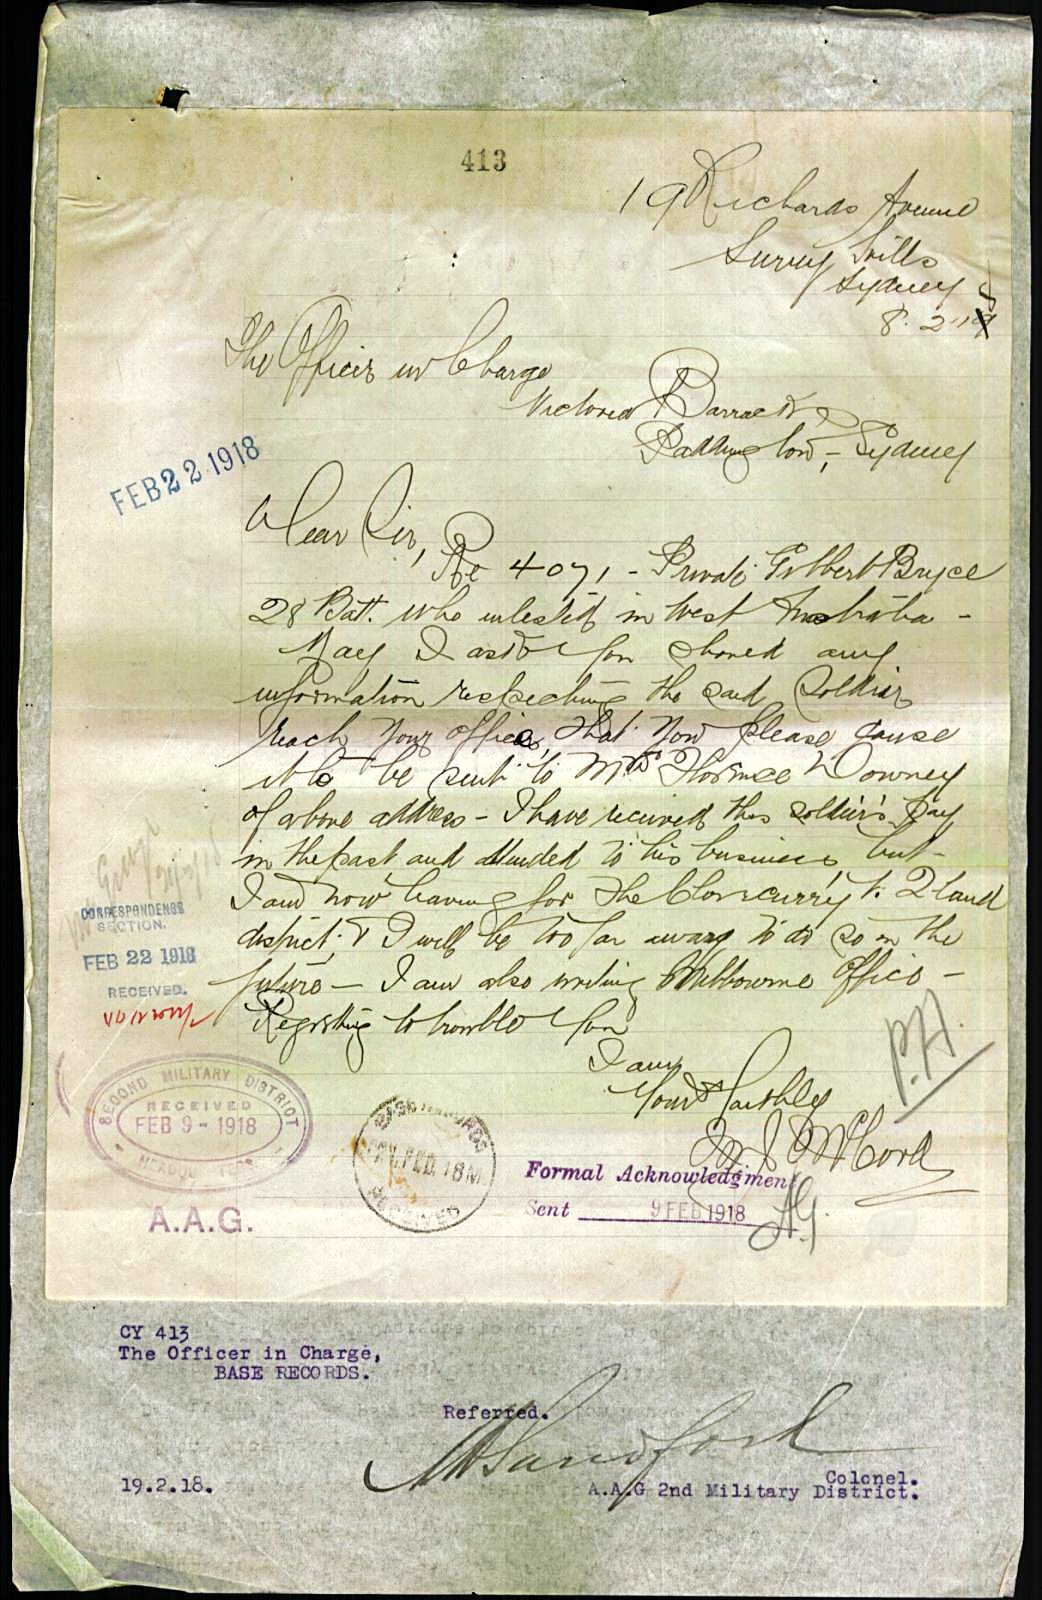 413
19 Richards Avenue
Surry Hills
Sydney
8. 2. 18
The Officer in Charge
Victoria Barracks
Paddington, - Sydney
FEB 22 1918
Dear Sir,
Re 4071 - Private Gilbert Bryce
28 Batt. who enlisted in West Australia -
May I ask you should any
information respecting the said soldier
reach your office, that you please cause
it to be sent to Mrs Florence Downey
of above address - I have received this soldier's pay
in the past and attended to his business but
I am now leaving for the Cloncurry
district, & I will be too far away to do so in the
future - I am also writing Melbourne Office -
Regretting to trouble you
I am
Yours Faithfully
McCord
CORRESPONDENCE
SECTION.
FEB 22 1918
RECEIVED.
P.A.
SECOND MILITARY DISTRICT
RECEIVED
FEB 9 - 1918
A.A.G.
BASE RECORDS
FEB. 18
RECEIVED
Formal Acknowledgment
Sent 9 FEB 1918
CY 413
The Officer in Charge,
BASE RECORDS.
Referred.
Sandford
Colonel.
19.2.18.
A.A.G 2nd Military District.